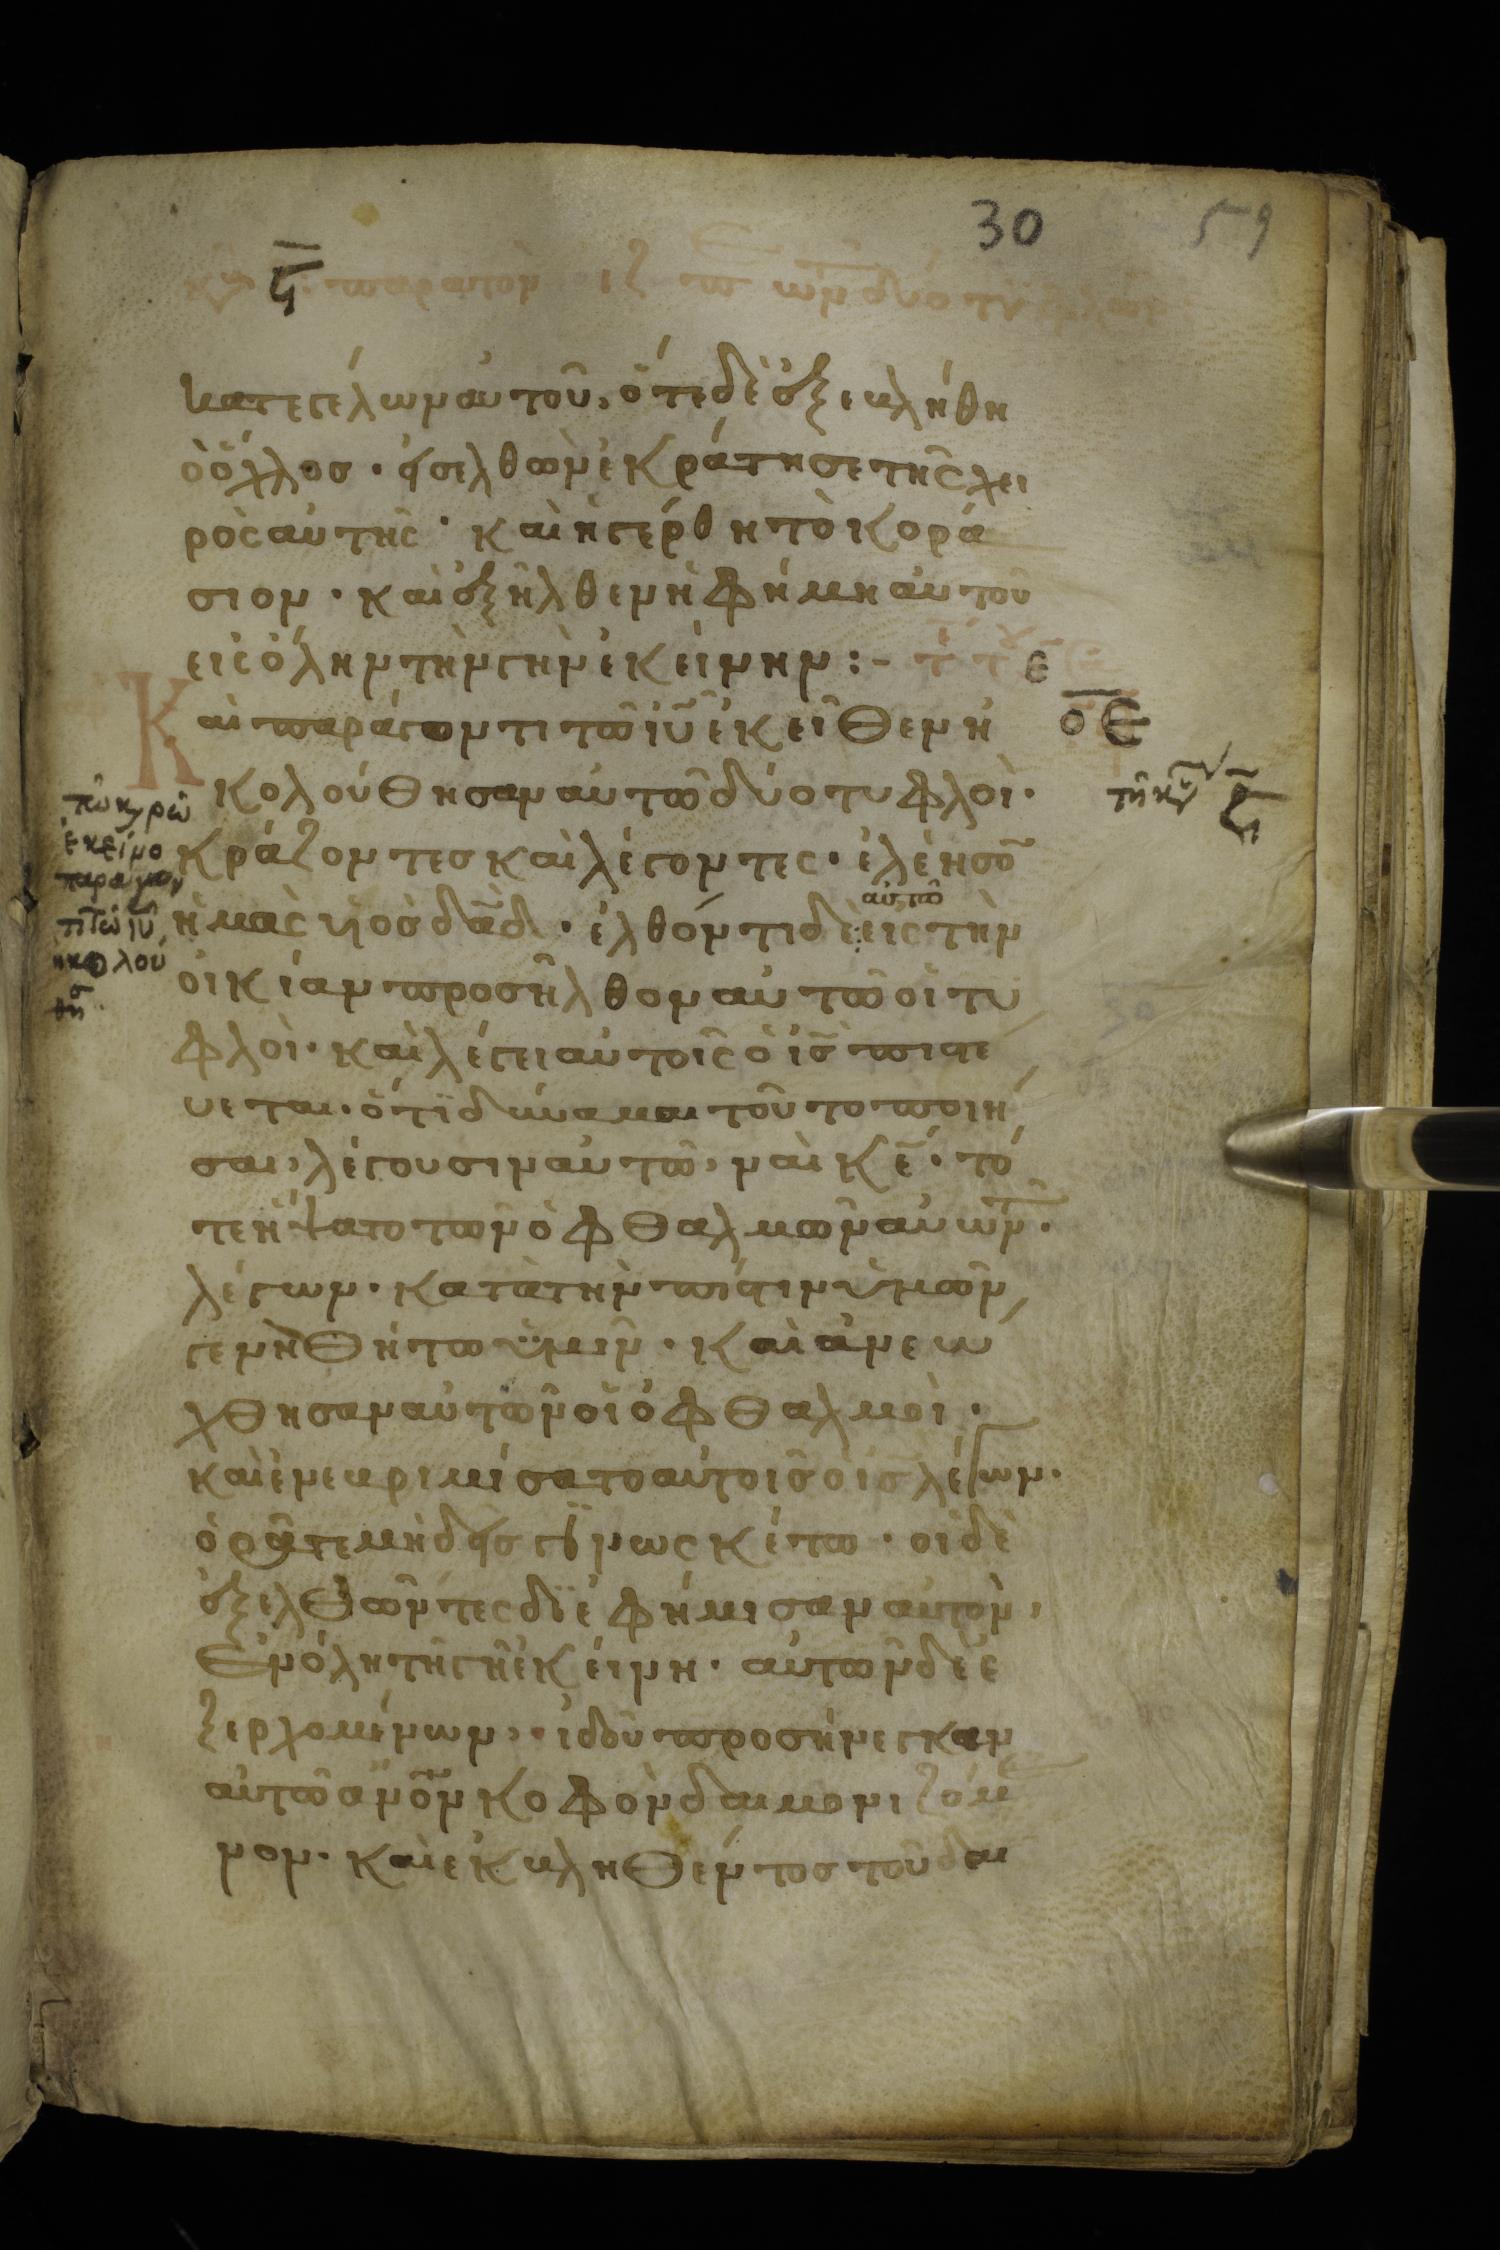 30 59
ζ
παρατον ιζ
κατεγέλων αὐτοῦ, ὅτε δὲ ἐξεβλήθη
ὁ ὄχλος· εἰσελθὼν ἐκράτησε τῆς χει
ρὸς αὐτῆς· καὶ ἠγέρθη τὸ κορά
σιον· καὶ ἐξῆλθεν ἡ φήμη αὐτοῦ
εἰς ὅλην τὴν γὴν ἐκείνην :-
Καὶ παράγοντι τῶ ἰῦ ἐκεῖθεν ἠ
κολούθησαν αὐτῶ δύο τυφλοὶ·
κράζοντες καὶ λέγοντες· ἐλέησο̄
ἡμᾶς υἱὸς δᾱδ· ἐλθόντι δὲ εἰς τὴν
αὐτῶ
οἰκίαν προσῆλθον αὐτῶ οἱ τυ
φλοὶ· καὶ λέγει αὐτοῖς ὁ ἰς̄ πιστε
ύεται· ὅτι δύναμαι τοῦτο ποιή
σαι, λέγουσιν αὐτῶ, ναὶ κε̄· τό
τε ἥψατο τῶν ὀφθαλμῶν αὐτῶν·
λέγων· κατὰ τὴν πίστιν ὑμῶν
γενηθήτω ὑμῖν· καὶ ἀνεω
χθησαν αὐτῶν οἱ ὀφθαλμοὶ·
καὶ ἐνεβριμήσατο αὐτοῖς ὁ ἰς̄ λέγων·
ὁρᾶτε μηδεὶς γινωσκέτω· οἱ δὲ
ἐξελθῶντες διεφήμισαν αὐτὸν,
ἐν ὅλη τῆ γῆ ἐκείνη· αὐτῶν δὲ ἐ
ξερχομένων, ἰδοῦ προσήνεγκαν
αὐτῶ ἄνον κοφὸν δαιμονιζόμε
νον· καὶ ἐκβληθέντος τοῦ δαι
οε
τῆ κυ ζ
τῶ κηρῶ
ἐκείνο
παράγον
τι τῶ ιῦ
ηκολού
θη